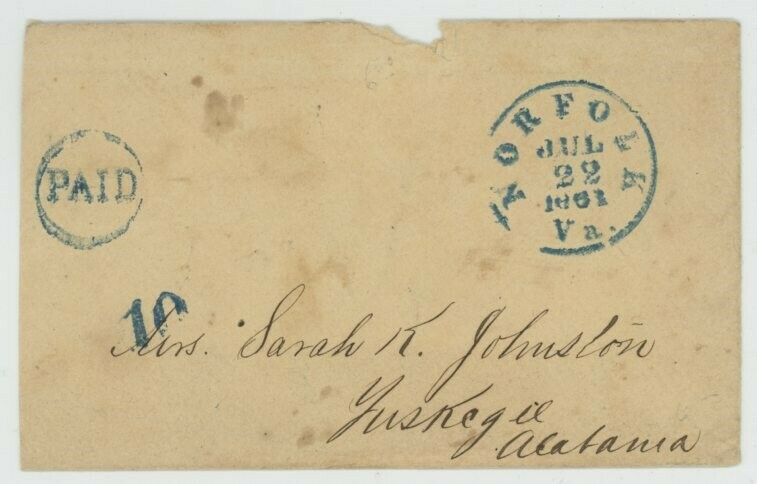 PAID
NORFOLK
JUL
22
1861
Va.
10
Mrs. Sarah K. Johnston
Tuskegee
Alabama